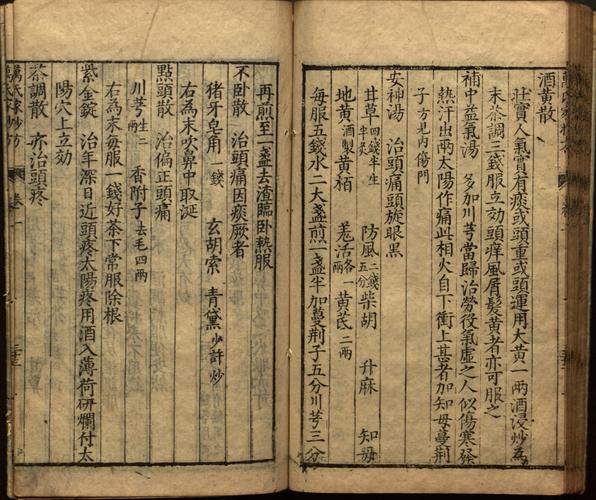 酒黄散
壯實人氣實有痰或頭重或頭運用大黄一兩酒浸炒為
末茶調三錢服立効頭痒風屑髮黄者亦可服之
補中益氣湯 多加川芎當歸治勞役氣虚之人似傷寒發
熱汗出兩太陽作痛此相火自下衝上甚者加知母蔓荆
子方見内傷門
安神湯 治頭痛頭旋眼黑
甘草四錢半生半炙 防風二錢五分 柴胡 升麻 知母
地黄酒製 黄栢 羗活各一兩 黄芪二兩
每服五錢水二大盞煎一盞半加蔓荆子五分川芎三分
再煎至一盞去渣臨卧熱服
不卧散 治頭痛因痰厥者
猪牙皂角一錢 玄胡索 青黛少許炒
右為末吹鼻中取涎
點頭散 治偏正頭痛
川芎生二兩 香附子去毛四兩
右為末每服一錢好茶下常服除根
紫金錠 治年深日近頭疼太陽疼用酒入薄荷研爛付太
陽穴上立効
茶調散 亦治頭疼
萬氏家抄方
卷一